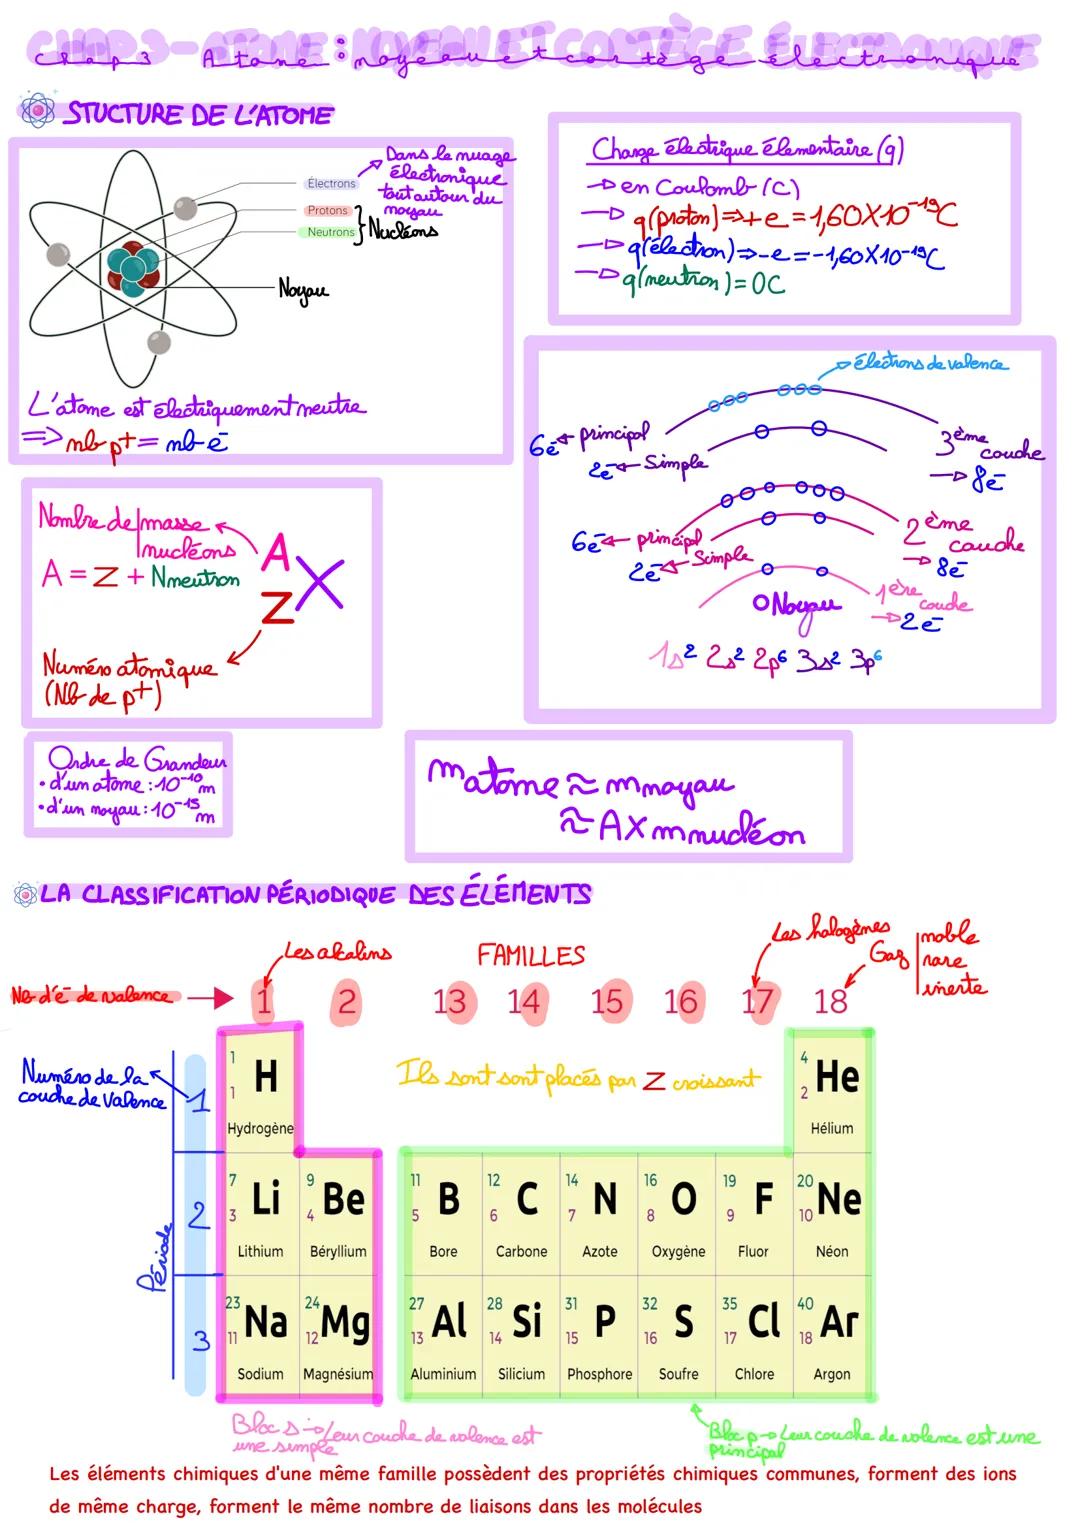 Chap 3 - Atome : noyau et cortège électronique
STUCTURE DE L'ATOME
Électrons
Protons
Neutrons
Dans le nuage
électronique
tout autour du
noyau
Nucléons
Noyau
L'atome est électriquement neutre
=> nb p+ = nb e-
Charge électrique élementaire (q)
→ en Coulomb (C)
→ q(proton) => + e = 1,60X10⁻¹⁹C
→ q(électron) => - e = -1,60X10⁻¹⁹C
→ q(neutron) = 0C
électrons de valence
6e- ← principal
2e- ← Simple
3ème couche
→ 8e-
6e- ← principal
2e- ← Simple
2ème couche
→ 8e-
Noyau
1ère couche
→ 2e-
1s² 2s² 2p⁶ 3s² 3p⁶
Nombre de masse
nucléons
A = Z + Nneutron
A
Z
X
Numéro atomique
(Nb de p+)
Ordre de Grandeur
• d'un atome : 10⁻¹⁰ m
• d'un noyau : 10⁻¹⁵ m
matome ≈ mnoyau
≈ A X mnucléon
LA CLASSIFICATION PÉRIODIQUE DES ÉLÉMENTS
Les alcalins
FAMILLES
Les halogènes
Gaz noble
rare
inerte
Nb d'e- de valence →
1 2 13 14 15 16 17 18
Numéro de la
couche de valence
Ils sont sont placés par Z croissant
Période
1
1 H 1 Hydrogène
4 He 2 Hélium
2
7 Li 3 Lithium
9 Be 4 Béryllium
11 B 5 Bore
12 C 6 Carbone
14 N 7 Azote
16 O 8 Oxygène
19 F 9 Fluor
20 Ne 10 Néon
3
23 Na 11 Sodium
24 Mg 12 Magnésium
27 Al 13 Aluminium
28 Si 14 Silicium
31 P 15 Phosphore
32 S 16 Soufre
35 Cl 17 Chlore
40 Ar 18 Argon
Bloc s → Leur couche de valence est
une simple
Bloc p → Leur couche de valence est une
principal
Les éléments chimiques d'une même famille possèdent des propriétés chimiques communes, forment des ions
de même charge, forment le même nombre de liaisons dans les molécules